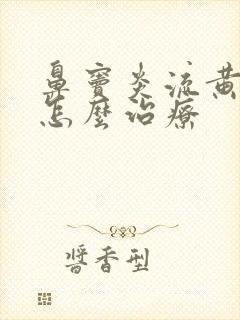 鼻竇炎流黃
怎麼治療
醬香型